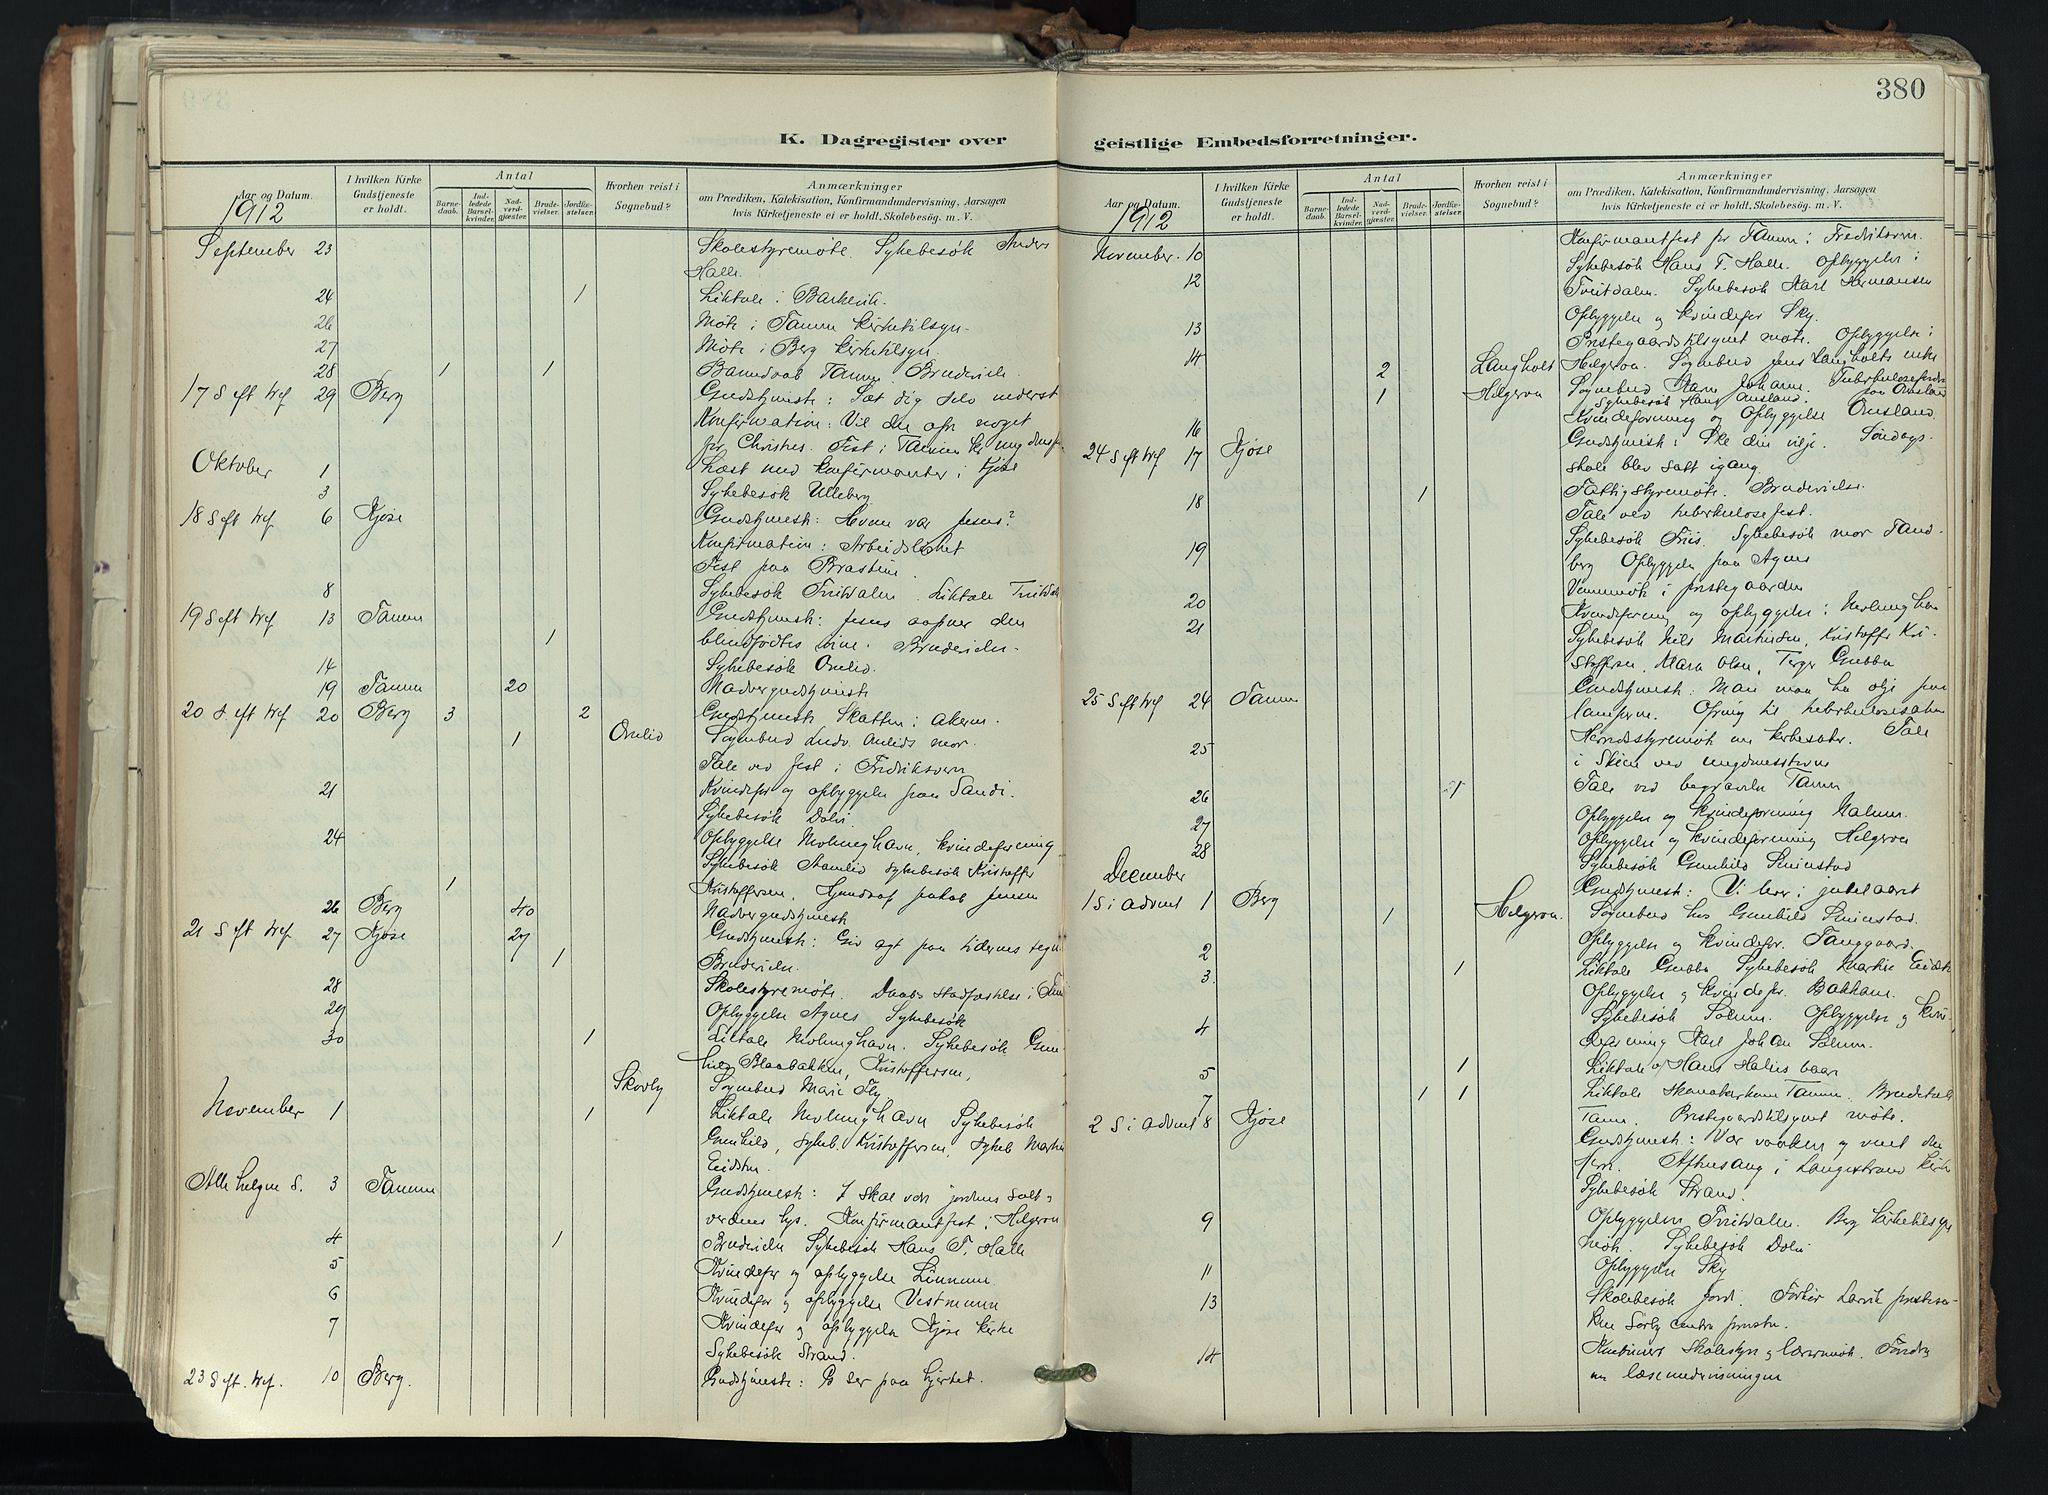 380
K. Dagregister over
geistlige Embedsforretninger.
Aar og Datum.
I hvilken Kirke Gudstjeneste er holdt.
Antal
Barnedaab.
Indledede Barselkvinder.
Nadverdgjæster.
Brudevielser.
Jordfæstelser.
Hvorhen reist i Sognebud?
Anmærkninger
om Prædiken, Katekisation, Konfirmandundervisning, Aarsagen
hvis Kirketjeneste ei er holdt, Skolebesøg. m. V.
1912
September 23 Skolestyremöte. Sykebesök Anders
Halle.
24 1 Liktale i Barkevik.
26 Möte i Tanum kirketilsyn.
27 Möte i Berg kirketilsyn.
28 1 1 Barnedaab Tanum Brudevielse.
17 S eft tref 29 Berg Gudstjeneste: Sæt dig selv nederst
Konfirmation: Vil du ofre noget
for Christus. Fest i Tanum
Oktober 1 Læst med konfirmanter i Kjose
3 Sykebesök Ulleberg
18 S eft tref 6 Kjose Gudstjeneste: Hvem var Jesus?
Konfirmation: Arbeidslöshet
Fest paa
8 Sykebesök Tveitdalen. Liktale Tveitdal
19 S eft tref 13 Tanum Gudstjeneste: Jesus aapner den
1 blindfödtes öine. Brudevielse.
14 Sykebesök Omlid.
19 Tanum 20 Nadvergudstjeneste
20 S. eft tref 20 Berg 3 2 Gudstjeneste Skatten i akeren.
1 Omlid Sognebud Ludv. Omlids mor.
Tale ved fest i Fredriksvern
21 Kvindefor og opbyggelse paa Sandi.
Sykebesök Dölvi
24 Opbyggelse Nevlunghavn, kvindeforening
Sykebesök Sykebesök Kristoffer
1 Kristoffersen, Hjemdaab Jakob Jensen
26 Berg 40 Nadvergudstjeneste
21 S eft tref. 27 Kjose 27 Gudstjeneste: Giv agt paa tidernes tegn
1 Brudevielse.
28 Skolestyremöte. Daabs stadfæstelse i Tanum
29 Opbyggelse Agnes Sykebesök
30 1 Liktale Nevlunghavn. Sykebesök Gun-
hild Blaabakken, Kristoffersen,
Skovby Sognebud Marie Fly
November 1 1 Liktale Nevlunghavn Sykebesök
Gunhild, sykeb. Kristoffersen, sykeb Martin
Eidsten.
Alle helgen S. 3 Tanum Gudstjeneste: I skal være jordens salt,
verdens lys. Konfirmantfest i Helgeroa
4 1 Brudevielse Sykebesök Hans T. Halle
5 Kvindefor og opbyggelse Linnum.
6 Kvindefor og opbyggelse Vestmunn
7 Kvindefor og opbyggelse Kjose kirke
Sykebesök Strand.
23 S eft. tref. 10 Berg. Gudstjeneste: G ser paa hjertet.
Aar og Datum.
I hvilken Kirke Gudstjeneste er holdt.
Antal
Barnedaab.
Indledede Barselkvinder.
Nadverdgjæster.
Brudevielser.
Jordfæstelser.
Hvorhen reist i Sognebud?
Anmærkninger
om Prædiken, Katekisation, Konfirmandundervisning, Aarsagen
hvis Kirketjeneste ei er holdt, Skolebesög. m. V.
1912
November. 10 Konfirmantfest for Tanum i Fredriksvern.
Sykebesök Hans T. Halle. Opbyggelse i
12 Tveitdalen. Sykebesök Karl Hermansen
Opbyggelse og kvindefor Sky.
13 Prestegaardstilsynet möte. Opbyggelse i
14 2 Langholt Helgeroa. Sognebud Jens Langholts enke
1 Helgeroa Sognebud Johanne. Tuberkuloseforedr.
Sykebesök Hans Omsland. paa Omsland
16 Kvindeforening og opbyggelse Omsland.
24 S eft tref 17 Kjose Gudstjeneste: Ske din vilje. Söndags-
skole blev sat igang.
18 1 Fattigstyremöte. Brudevielse.
Tale ved tuberkulosefest.
19 Sykebesök Friis. Sykebesök mor Tand-
berg Opbyggelse paa Agnes
20 i prestegaarden
21 Kvindeforening og opbyggelse i Nevlunghavn
Sykebesök Nils Martinsen, Kristoffer Kri-
stoffersen, Maren Olsen, Terger Gubba
25 S eft tref 24 Tanum Gudstjeneste: Man maa ha olje paa
lampen. Ofring til tuberkulosesaken
25 Herredsstyremöte om kirkesaker. Tale
i Skien ved ungdomsstevne
26 1 Tale ved begravelse Tanum
27 Opbyggelse og kvindeforening Nalum.
28 Opbyggelse og kvindeforening Helgeroa
Sykebesök Gunhild
December
1 S i advent 1 Berg Gudstjeneste: Vi lever i jubelaaret
1 Helgeroa. Sognebud hos Gunhild
2 Opbyggelse og kvindefor. Fanggaard.
3 1 Liktale Gubba Sykebesök Martin Eidsten
Opbyggelse og kvindefor. Bakkane.
4 Sykebesök Solum. Opbyggelse og kvin-
deforening Karl Johan Solum.
5 1 Liktale Hans Halles baare
7 1 1 Liktale Tanum. Brudetale
Tanum. Prestegaardstilsynet möte.
2 S i advent 8 Kjose Gudstjeneste: Vær vaaken og vent den
Herre. Aftensang i Langestrand kirke
Sykebesök Strand.
9 Opbyggelse Tveitdalen. Berg kirketilsyns
möte. Sykebesök Dölvi
11 Opbyggelse Sky
13 Skolebesök Jordi. Forhör Larvik
14 Kombinert Skolestyre og lærermöte. Foredrag
om læseundervisningen